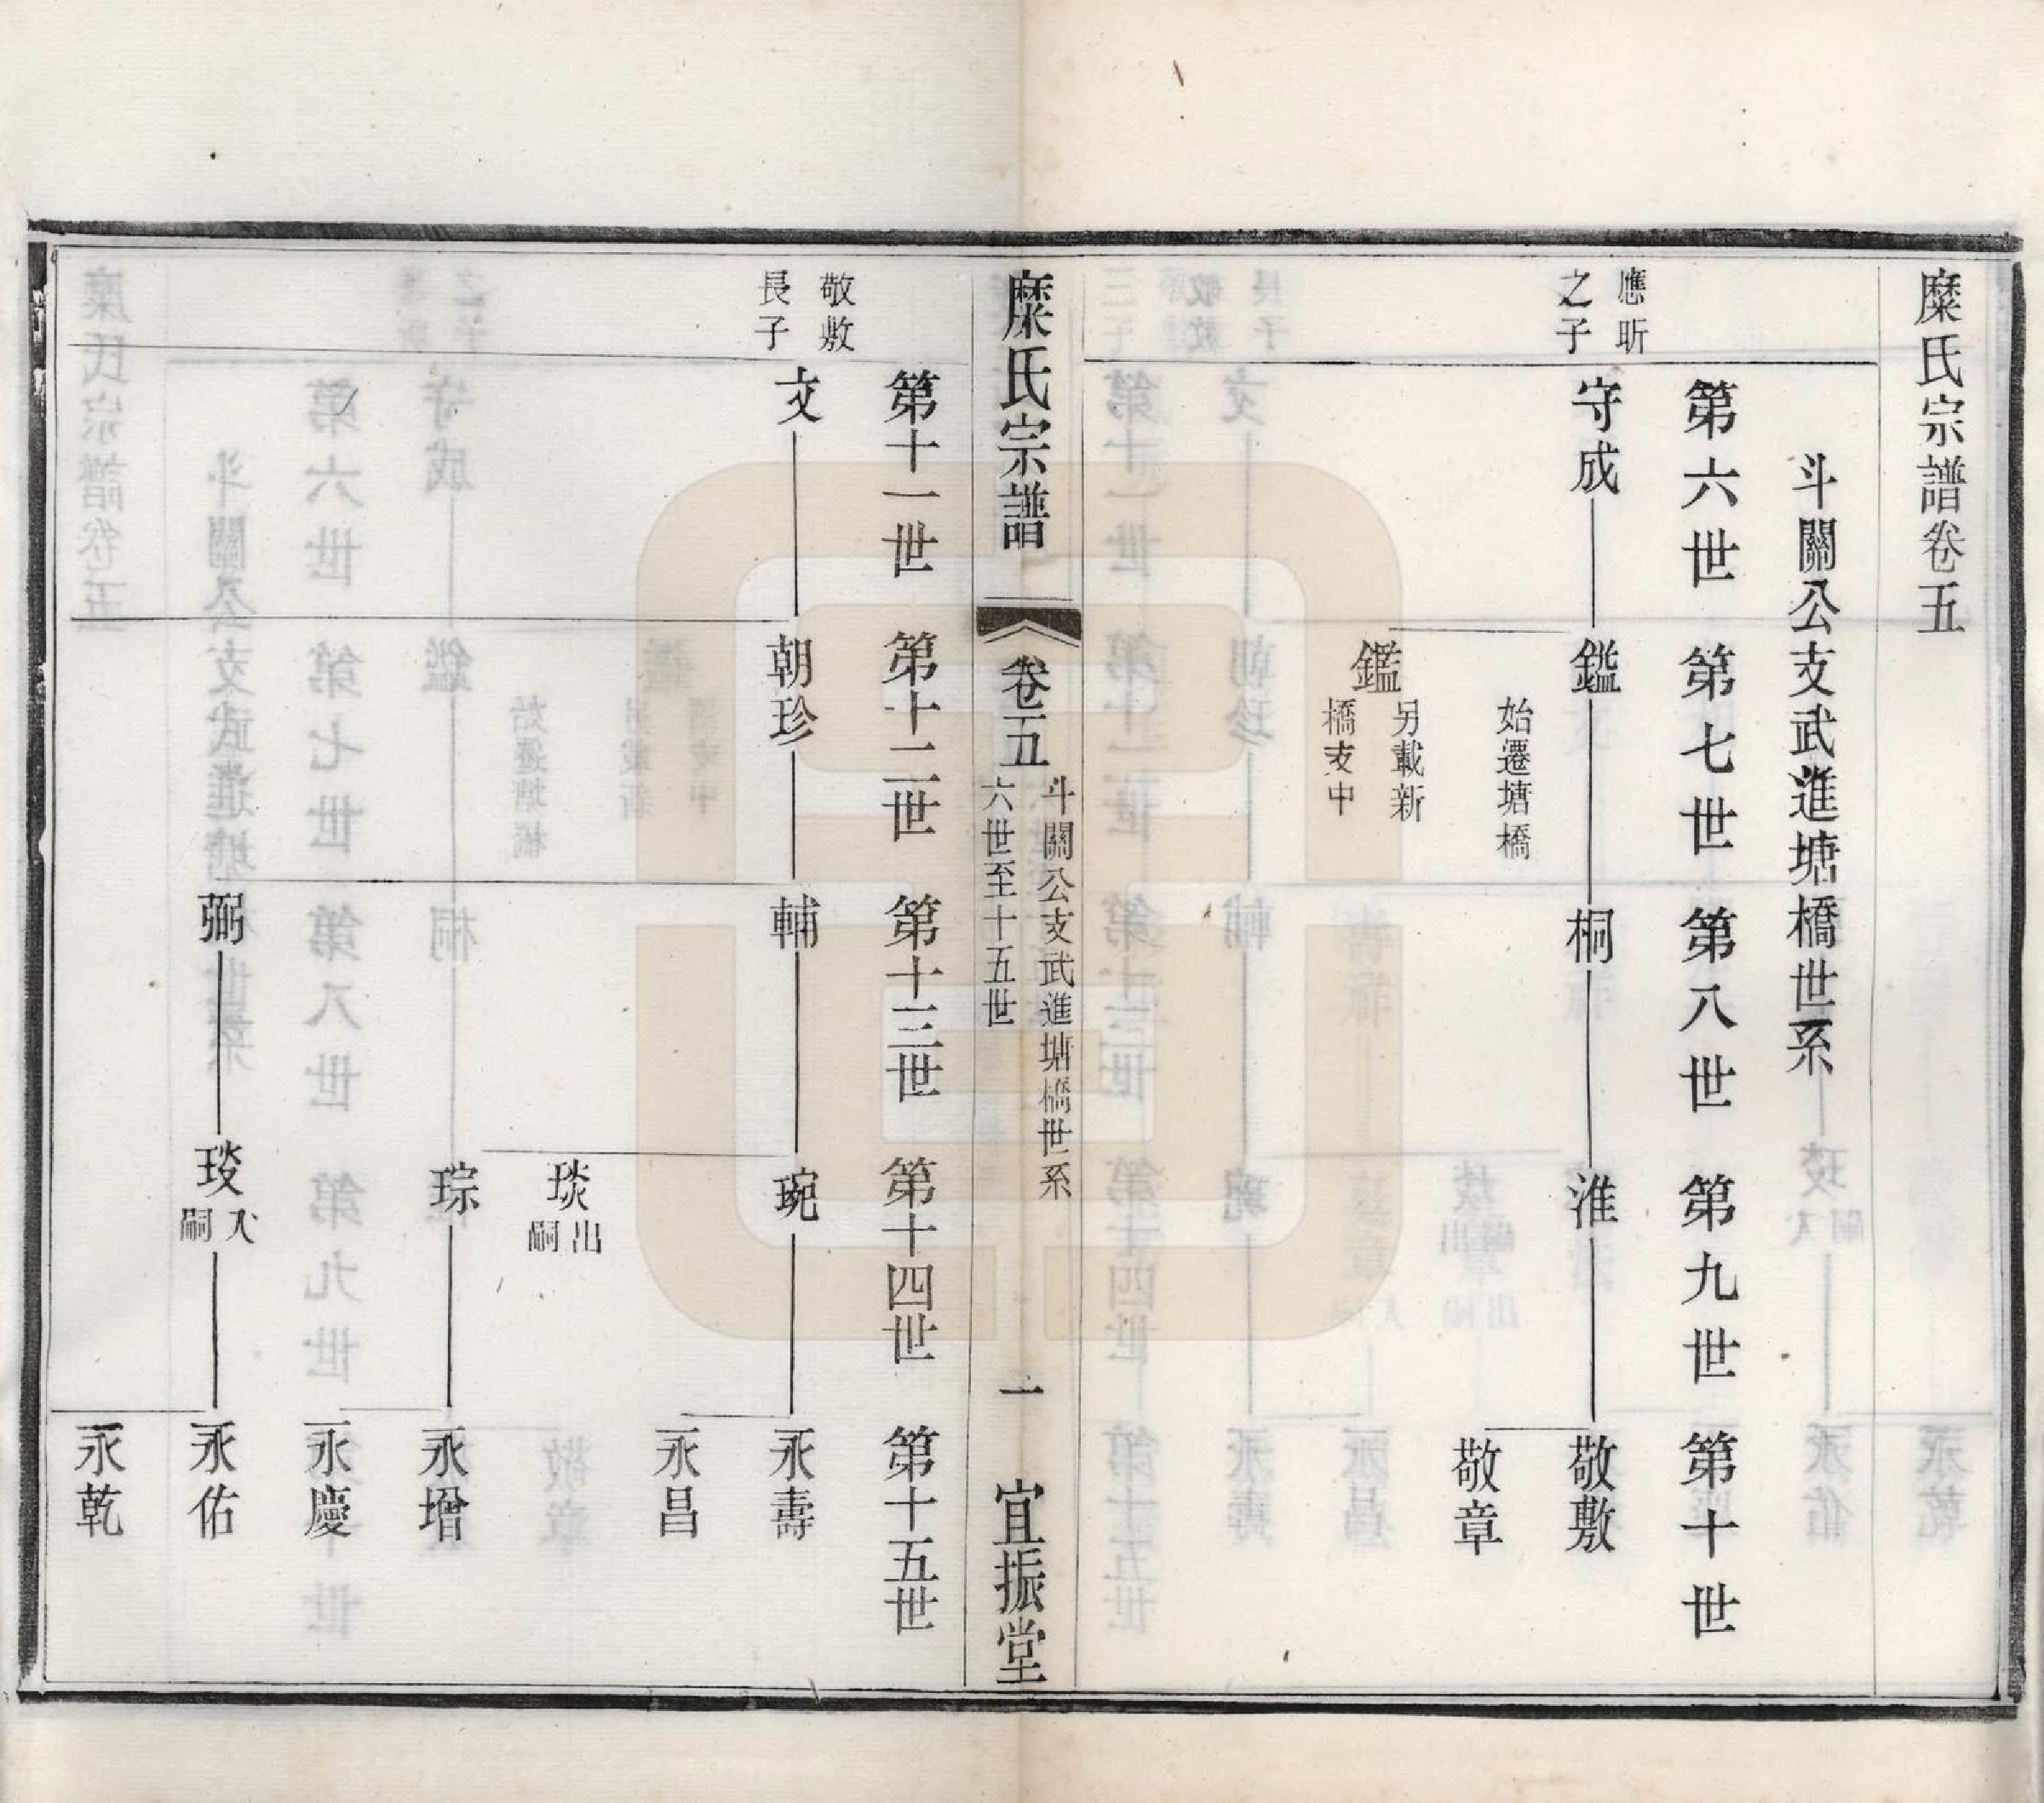 糜氏宗譜卷五
斗關公支武進塘橋世系
第六世 第七世 第八世 第九世 第十世
應昕
之子
守成 鑑 桐 淮 敬敷
始遷塘橋
敬章
鑑
另載新
橋支中
糜氏宗譜 卷五 斗關公支武進塘橋世系
六世至十五世
一 宜振堂
第十一世 第十二世 第十三世 第十四世 第十五世
敬敷
長子
文 朝珍 輔 琬 永壽
永昌
琰 出嗣
琮 永增
永慶
弼 琰 入嗣 永佑
永乾